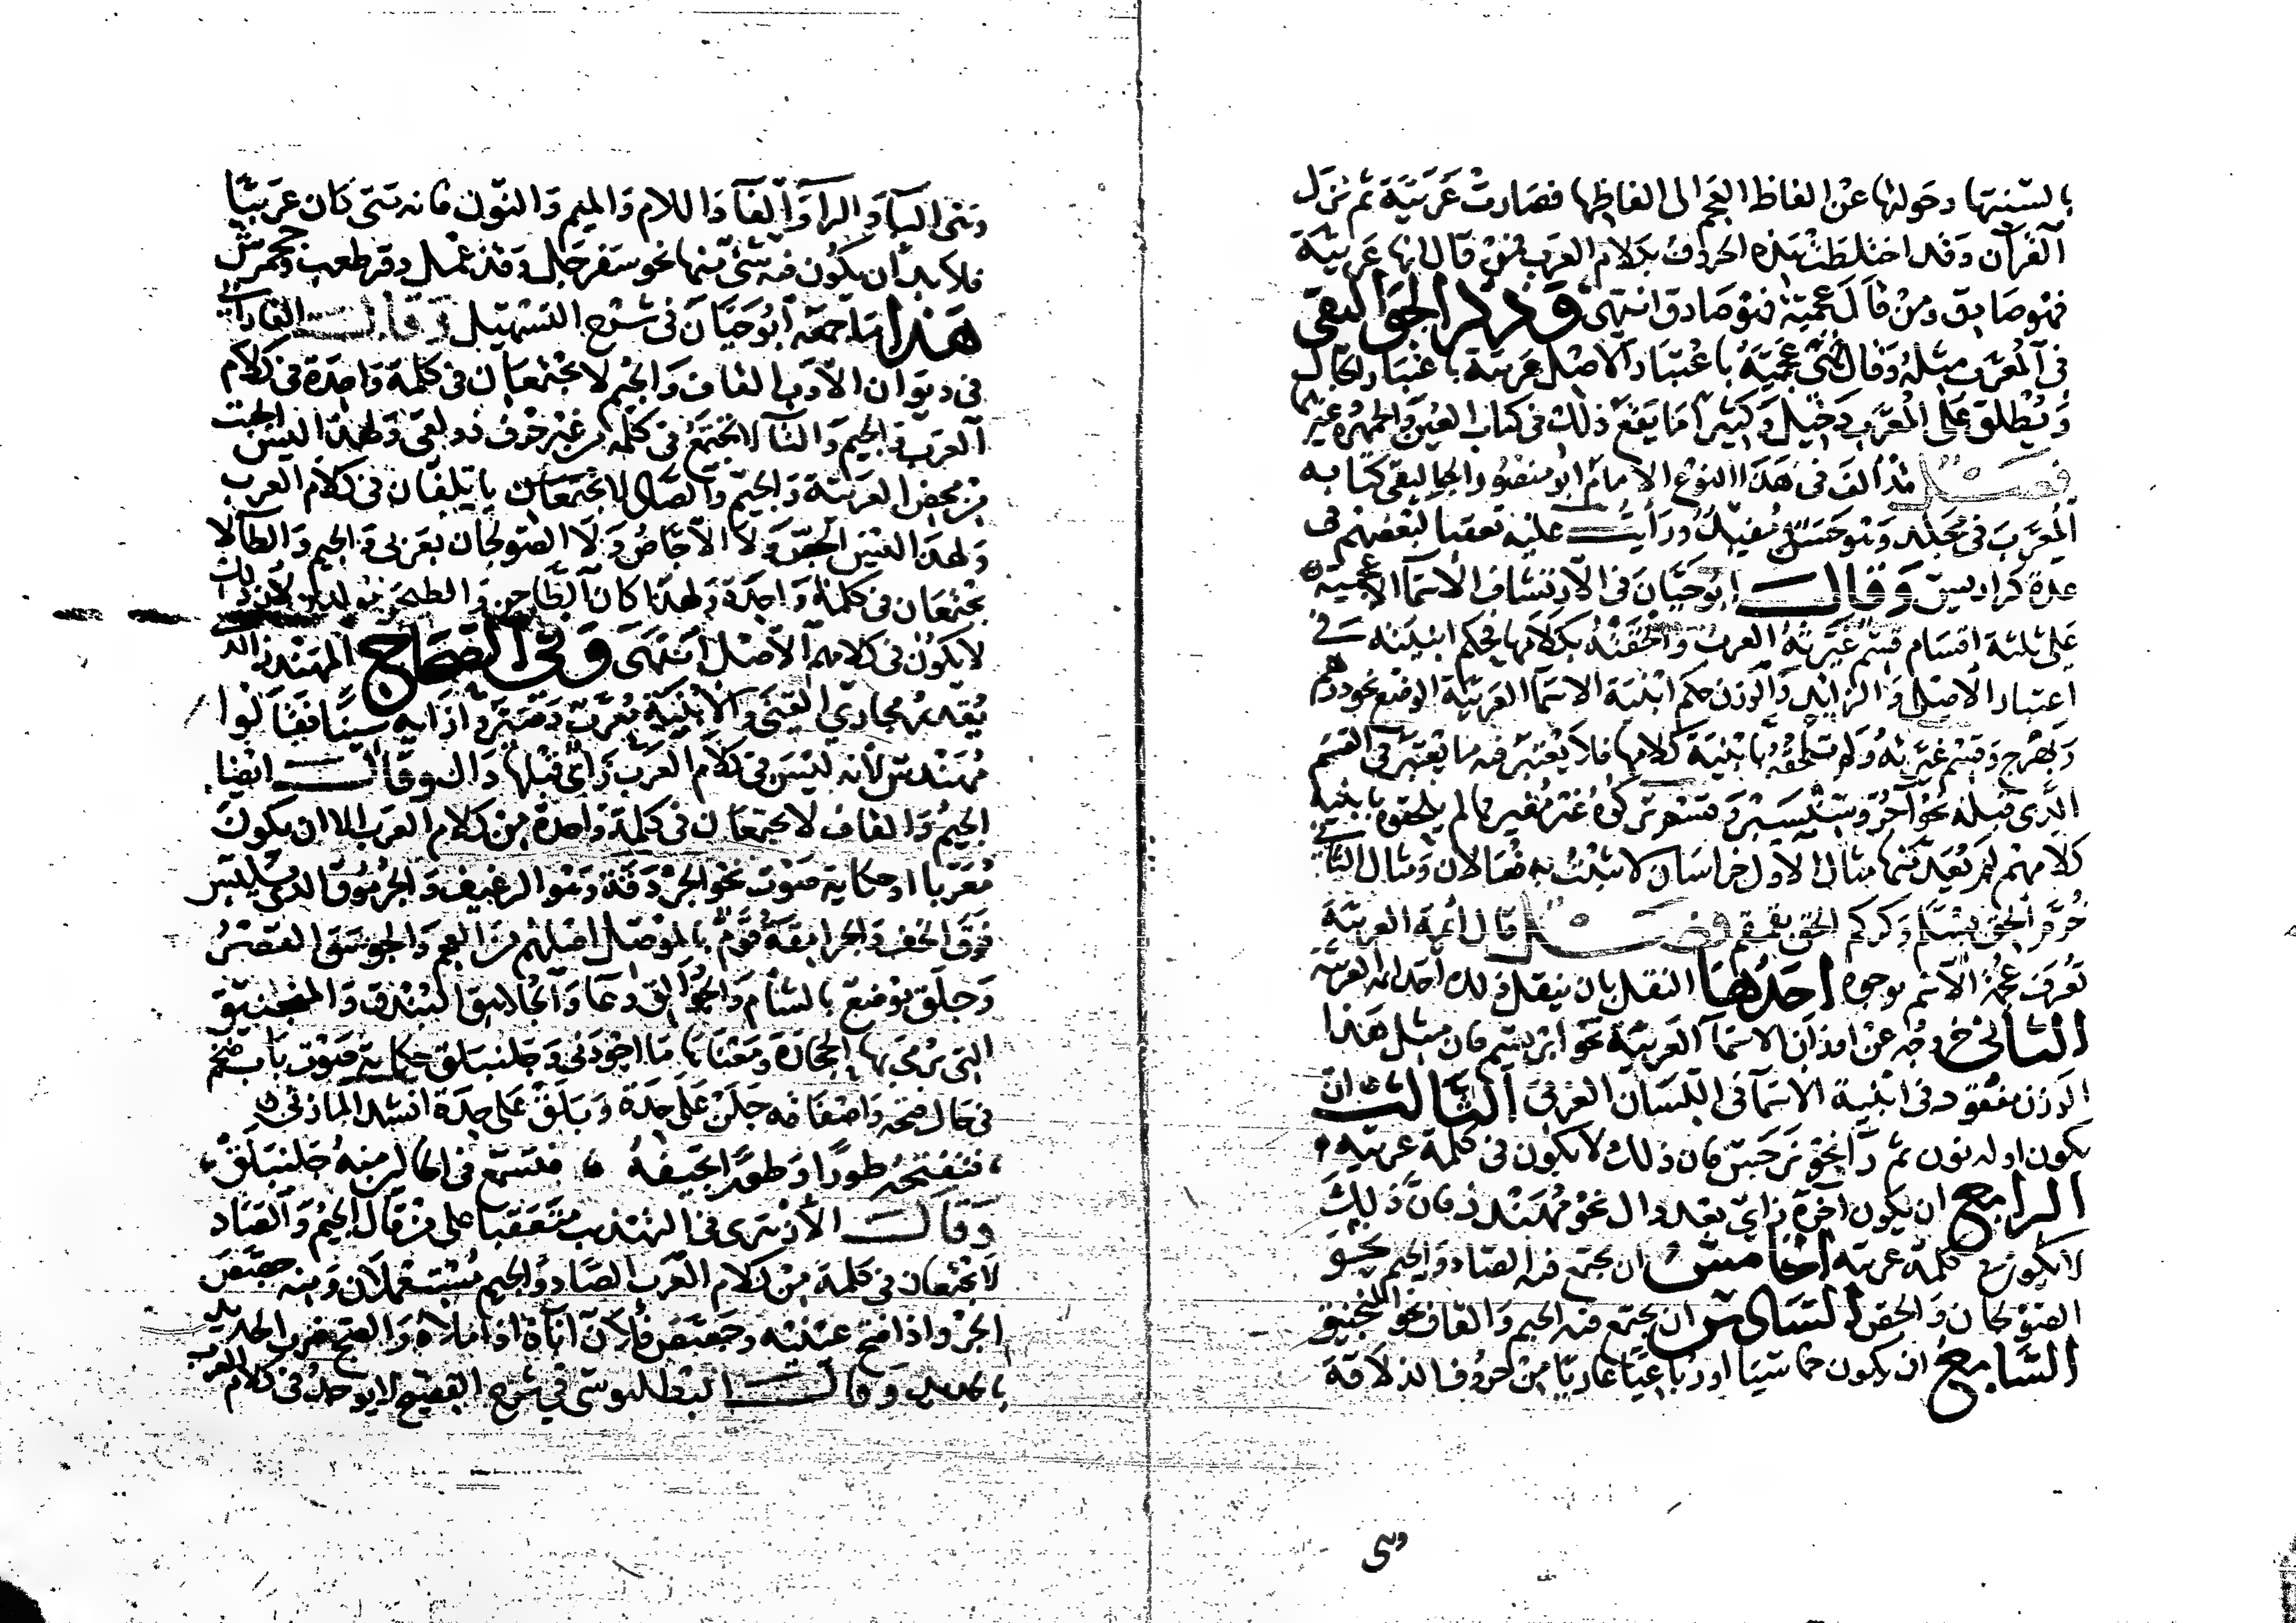 بالسنتها وحولتها عن الفاظ العجم الى الفاظها فصارت عربية ثم نزل
القرآن وقد اختلطت هذه الحروف بكلام العرب فمن قال انها عربية
فهو صادق ومن قال عجمية فهو صادق انتهى وذكر الجواليقي
في المعرب مثله وقال فهي عجمية باعتبار الاصل عربية باعتبار الحال
ويطلق على المعرب دخيل وكثيرا ما يقع ذلك في كتاب العين والجمهرة وغيرهما
فصل قد الف في هذا النوع الامام ابو منصور الجواليقي كتابه
المعرب في مجلد وهو حسن مفيد ورأيت عليه تعقبا لبعضهم في
عدة كراريس وقال ابو حيان في الارتشاف الاسما الاعجمية
على ثلثة اقسام قسم غيرته العرب والحقته بكلامها فحكم ابنيته في
اعتبار الاصل والزايد والوزن حكم ابنية الاسما العربية الوضع نحو درهم
وبهرج وقسم غيرته ولم تلحقه بابنية كلامها فلا يعتبر فيه ما يعتبر في القسم
الذي قبله نحو آجر وسيسنبر وقسم تركوه غير مغير فما لم يلحقوه بابنية
كلامهم لم يعد منها مثال الاول خراسان لا يثبت به فعالان ومثال الثاني
خرم الحق بسلم وكركم الحق بقمقم فصل قال ائمة العربية
تعرف عجمة الاسم بوجوه احدها النقل بان ينقل ذلك احد ائمة العربية
الثاني خروجه عن اوزان الاسمآ العربية نحو ابريسم فان مثل هذا
الوزن مفقود في ابنية الاسما في اللسان العربي الثالث ان
يكون اوله نون ثم رآ نحو نرجس فان ذلك لا يكون في كلمة عربية
الرابع ان يكون آخره زاي بعد دال نحو مهندز فان ذلك
لا يكون في كلمة عربية الخامس ان يجتمع فيه الصاد والجيم نحو
الصولجان والجص السادس ان يجتمع فيه الجيم والقاف نحو المنجنيق
السابع ان يكون خماسيا او رباعيا عاريا من حروف الذلاقة
وهي
وهي البآ والرآ والفآ واللام والميم والنون فانه متى كان عربيا
فلا بد ان يكون فيه شي منها نحو سفرجل وقذعمل وقرطعب وجحمرش
هذا ما جمعه ابو حيان في شرح التسهيل وقال الفارابي
في ديوان الادب القاف والجيم لا يجتمعان في كلمة واحدة في كلام
العرب والجيم والتآ لا تجتمع في كلمة من غير حرف ذولقي ولهذا ليس الجبت
من محض العربية والجيم والصاد لا يجتمعان يأتلفان في كلام العرب
ولهذا ليس الجص ولا الاجاص ولا الصولجان بعربي والجيم والطا لا
يجتمعان في كلمة واحدة ولهذا كان الطاجن والطيجن مولدين لان ذلك
لا يكون في كلامهم الاصلي انتهى وفي الصحاح المهندز الذي
يقدر مجاري القني والابنية معرب وصيروا زايه سينا فقالوا
مهندس لانه ليس في كلام العرب زاي قبلها دال وقال ايضا
الجيم والقاف لا يجتمعان في كلمة واحدة من كلام العرب الا ان يكون
معربا او حكاية صوت نحو الجردقة وهو الرغيف والجرموق الذي يلبس
فوق الخف والجرامقة قوم بالموصل اصلهم من العجم والجوسق القصر
وجلق موضع بالشام والجوالق وعا والجلاهق البندق والمنجنيق
التي يرمى بها الحجارة ومعناها ما اجودني وجلنبلق حكاية صوت باب ضخم
في حال فتحه واصفاقه جلن على حدة وبلق على حدة انشد المازني
فتفتحه طورا وطورا تجيفه فتسمع في الحالين منه جلنبلق
وقال الازهري في التهذيب متعقبا على من قال الجيم والصاد
لا يجتمعان في كلمة من كلام العرب الصاد والجيم مستعملان ومنه جصص
الجرو اذا فتح عينيه وجصص فلان انآه اذا ملأه والصج ضرب الحديد
بالحديد وقال البطليوسي في شرح الفصيح لا يوجد في كلام العرب